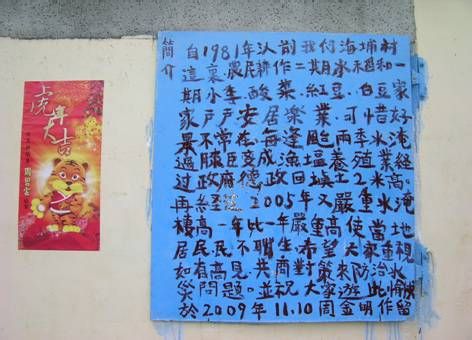 虎年
大吉
簡介
自1981年以前我們海埔村
這裏農民耕作二期水稻和一
期小季酸菜.紅豆.白豆家
家戶戶安居樂業.可惜好
景不常在每逢颱雨季水淹
過膝臣变成漁塭養殖業經
过政府德政回塡土2米高.
再經 2005年又嚴重水淹
樓高一年比一年嚴重高使當地
居民民不聊生.希望大家重視
如有高見共商對策來防治水
災問題。並祝大家遊此愉快
於2009年.11.10周金明作留